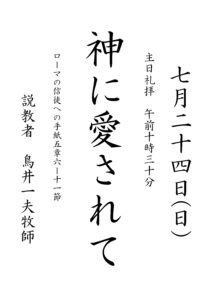 七月二十四日(日)
主日礼拝　午前十時三十分
神に愛されて
ローマの信徒への手紙五章六ー十一節
説教者　鳥井一夫牧師